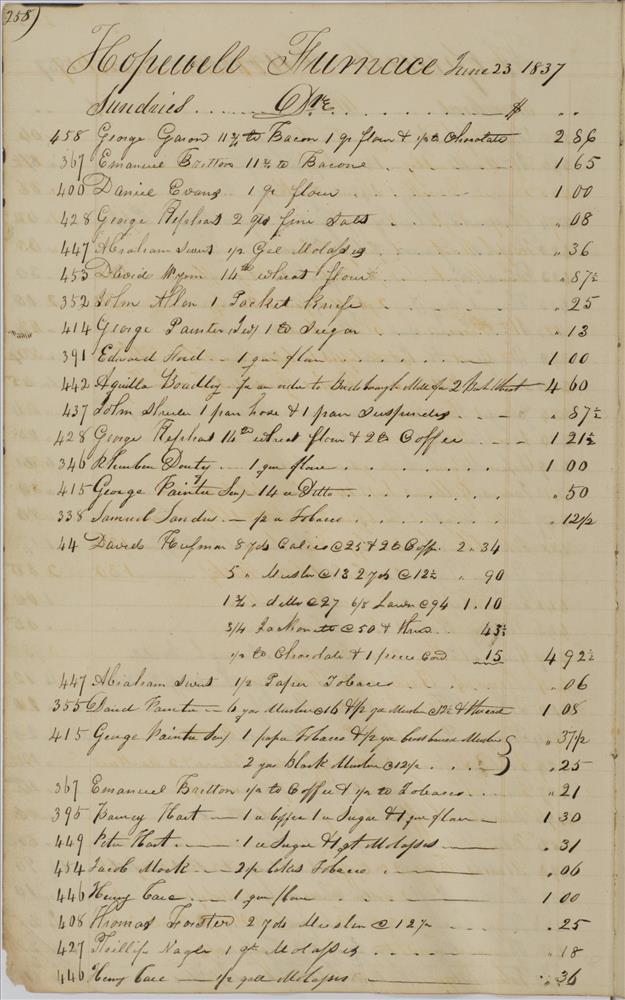 258)
Hopewell Furnace June 23 1837
Sundries Dr $
458 George 11 3/4 lb Bacon 1 qr flour & 1/2 lb Chocolate 2 86
367 Emanuel Britton 11 3/4 lb Bacone 1 65
400 Daniel Evans 1 qr flour 1 00
428 George Rephas 2 qts fine Salt " 08
447 Abraham 1/2 Gal Molasses " 36
453 David Wynn 14 lb wheat flour " 87 1/2
352 John Allen 1 Pocket Knife " 25
414 George Painter 1 lb Sugar " 13
391 Edward 1 qur flour 1 00
442 Aquilla Bradley an order to 2 4 60
437 John 1 pair hose & 1 pair Suspenders " 87 1/2
428 George Rephas 14 lb wheat flour & 2 lb Coffee 1 21 1/2
346 Douty 1 qur flour 1 00
415 George Painter Senr 14 lb Ditto " 50
338 Samuel Sands Tobacco " 12 1/2
44 David Hufman 8 yds Calico @ 25 & 2 lb Coff. 2 " 34
5 " Muslin @ 13 2 yds @ 12 1/2 " 90
1 3/4 " ditto @ 27 6/8 Lawn @ 94 1 " 10
3/4 @ 50 & 43 1/2
1/2 lb Chocolate & 1 piece Cord 15 4 92 1/2
447 Abraham 1/2 Paper Tobacco " 06
355 David Painter 6 yds Muslin @ 16 & 1/2 yd Muslin @ 12 1/2 & thread 1 08
415 George Painter Senr 1 paper Tobacco & 1/2 yd Muslin " 37 1/2
2 yds black Muslin @ 12 1/2 " 25
367 Emanuel Britton 1/2 lb Coffee & 1/2 lb Tobacco " 21
395 Hart 1 lb Coffee 1 lb Sugar & 1 qur flour 1 30
449 Peter Hart 1 lb Sugar & 1 qt Molasses " 31
454 Jacob Mock Tobacco " 06
446 Henry Care 1 qur flour 1 00
408 Thomas Forster 2 yds Muslin @ 12 1/2 " 25
427 Phillip Nagle 1 qt Molasses " 18
446 Henry Care 1/2 gall Molasses " 36